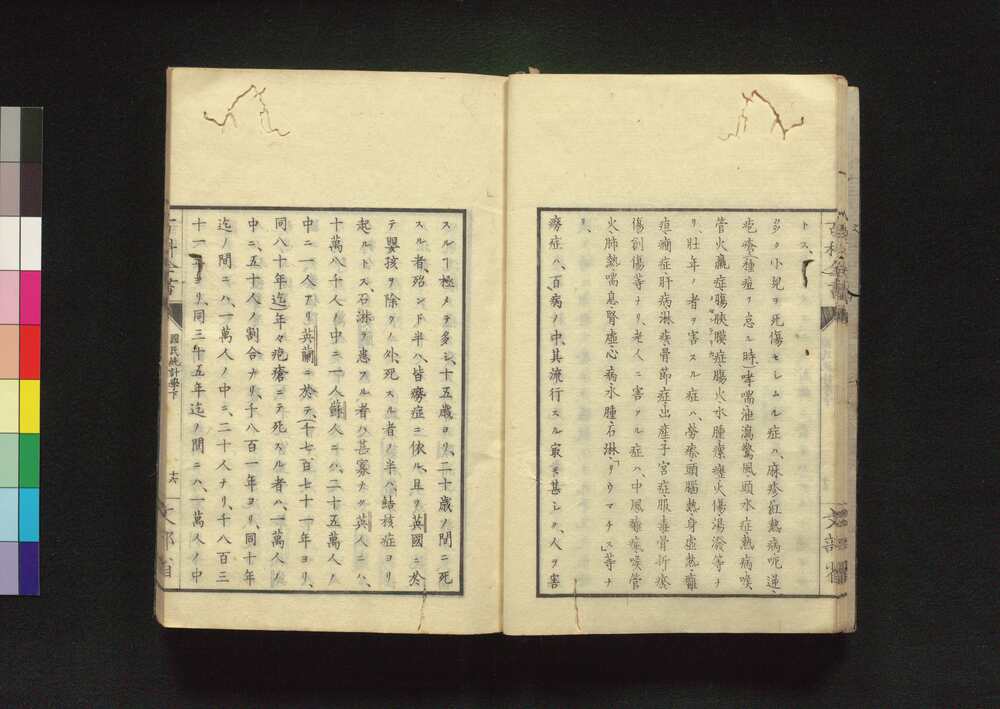 トス、
多ク小兒ヲ死傷セシムル症ハ、麻疹紅熱病呃逆、
疱瘡種痘ヲ怠ル時、哮喘泄瀉驚風頭水症熱病喉
管火羸症腸胰膜症腸火水腫瘰癧火傷湯潑等ナ
リ、壯年ノ者ヲ害スル症ハ、勞瘵頭腦熱身虛熱癰
疽痛症肝病淋疾骨節症出產子宮症服毒骨折瘵
傷創傷等ナリ、老人ニ害アル症ハ、中風癱瘓喉管
火肺熱喘息腎虛心病水腫石淋「リウマチス」等ナ
リ、
癆症ハ、百病ノ中、其流行スル最モ甚シク、人ヲ害
スルヿ極メテ多シ、十五歲ヨリ、二十歲ノ間ニ死
スル者、殆ンド半ハ、皆癆症ニ依ル、且ツ英國ニ於
テ嬰孩ヲ除クノ外、死スル者ノ半ハ、結核症ヨリ
起ルトス、石淋ヲ患フル者ハ甚寡ナク、英人ニハ、
十萬八千人ノ中ニ一人、蘇人ニハ、二十五萬人ノ
中ニ一人アリ、英蘭ニ於テ、一千七百七十一年ヨリ、
同八十年迄、年々疱瘡ニテ死スル者ハ、一萬人ノ
中ニ、五十人ノ割合ナリ、千八百一年ヨリ、同十年
迄ノ間ニハ、一萬人ノ中ニ、二十人ナリ、千八百三
十一年ヨリ、同三十五年迄ノ間ニハ、一萬人ノ中
百科全書
國民統計學下
十六
文部省